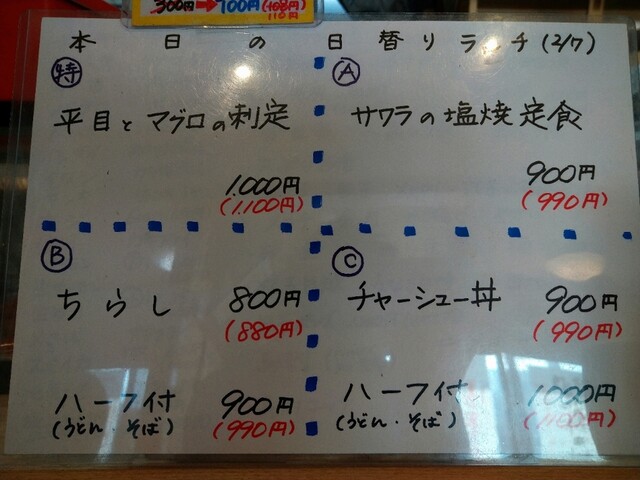 300円→100円(108円)
110円
本日の日替りランチ(2/7)
特
平目とマグロの刺定
1.000円
(1.100円)
A
サワラの塩焼定食
900円
(990円)
B
ちらし 800円
(880円)
ハーフ付 900円
(うどん・そば) (990円)
C
チャーシュー丼 900円
(990円)
ハーフ付 1000円
(うどん・そば) (1100円)